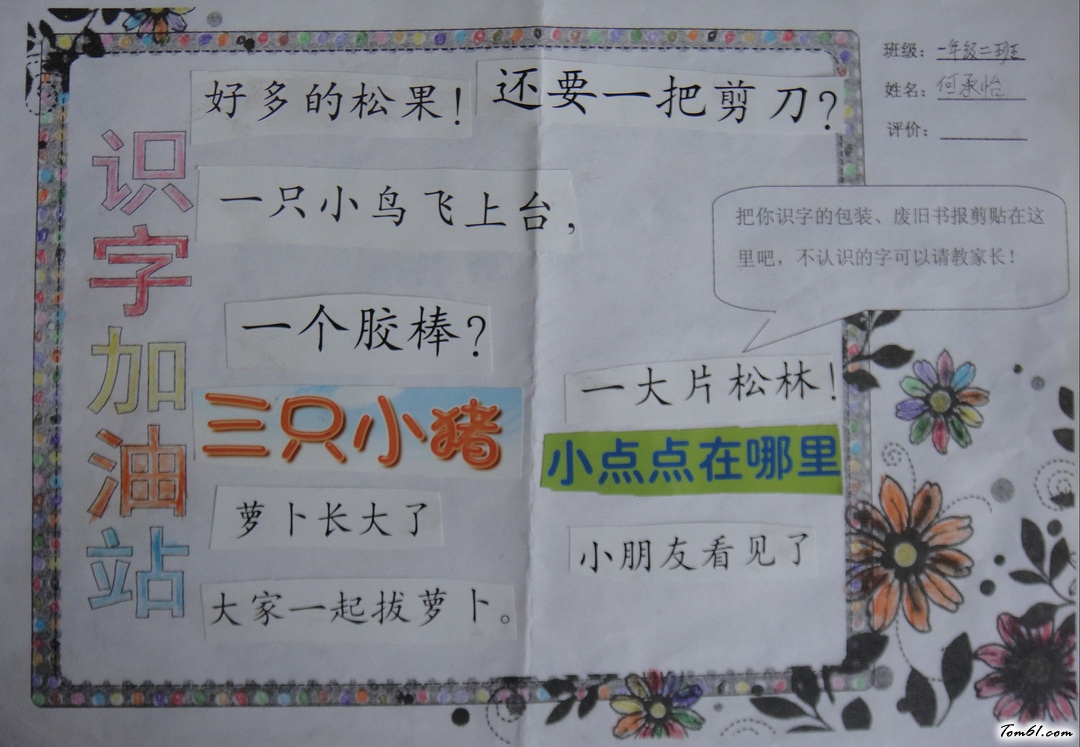 识字加油站
好多的松果！
还要一把剪刀？
一只小鸟飞上台，
一个胶棒？
三只小猪
萝卜长大了
大家一起拔萝卜。
一大片松林！
小点点在哪里
小朋友看见了
班级：一年级二班
姓名：何承怡
评价：
把你识字的包装、废旧书报剪贴在这
里吧，不认识的字可以请教家长！
Tom61.com